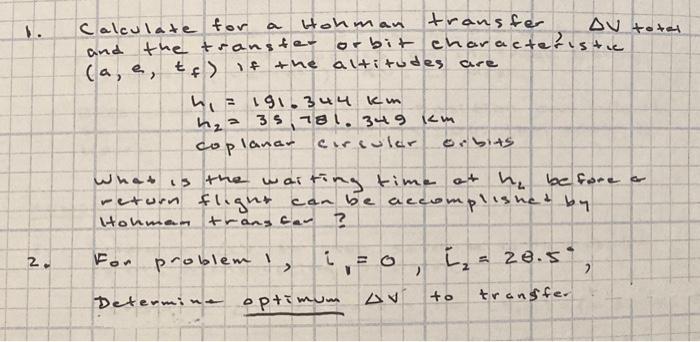 1. Calculate for a Hohman transfer ΔV total
and the transfer orbit characteristic
(a, e, t_f) if the altitudes are
h₁ = 191.344 km
h₂ = 35,781.349 km
coplanar circular orbits
What is the waiting time at h₂ before a
return flight can be accomplished by
Hohman transfer ?
2. For problem 1, i₁ = 0, i₂ = 28.5°,
Determine optimum ΔV to transfer